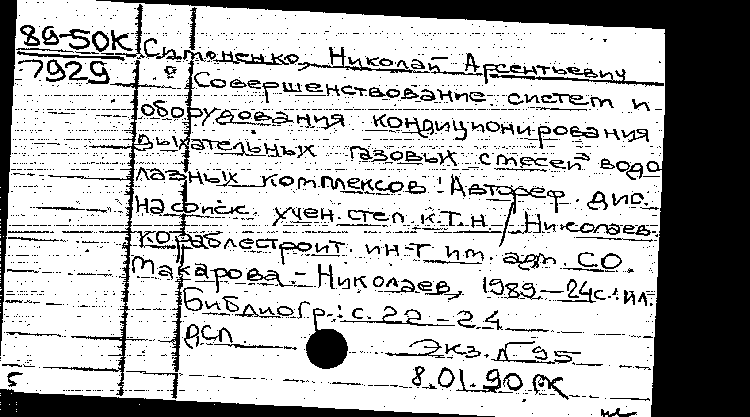 89-50К Симоненко, Николай Арсентьевич
7929
Совершенствование систем и
оборудования кондиционирования
дыхательных газовых смесей водо
лазных комплексов : Автореф. дис.
на соиск. учен. степ. к.т.н / Николаев.
кораблестроит. ин-т им. адм. С.О.
Макарова. - Николаев, 1989. - 24с. : ил.
Библиогр.: с. 22 - 24
ДСП.
Экз. N 95
8.01.90
5